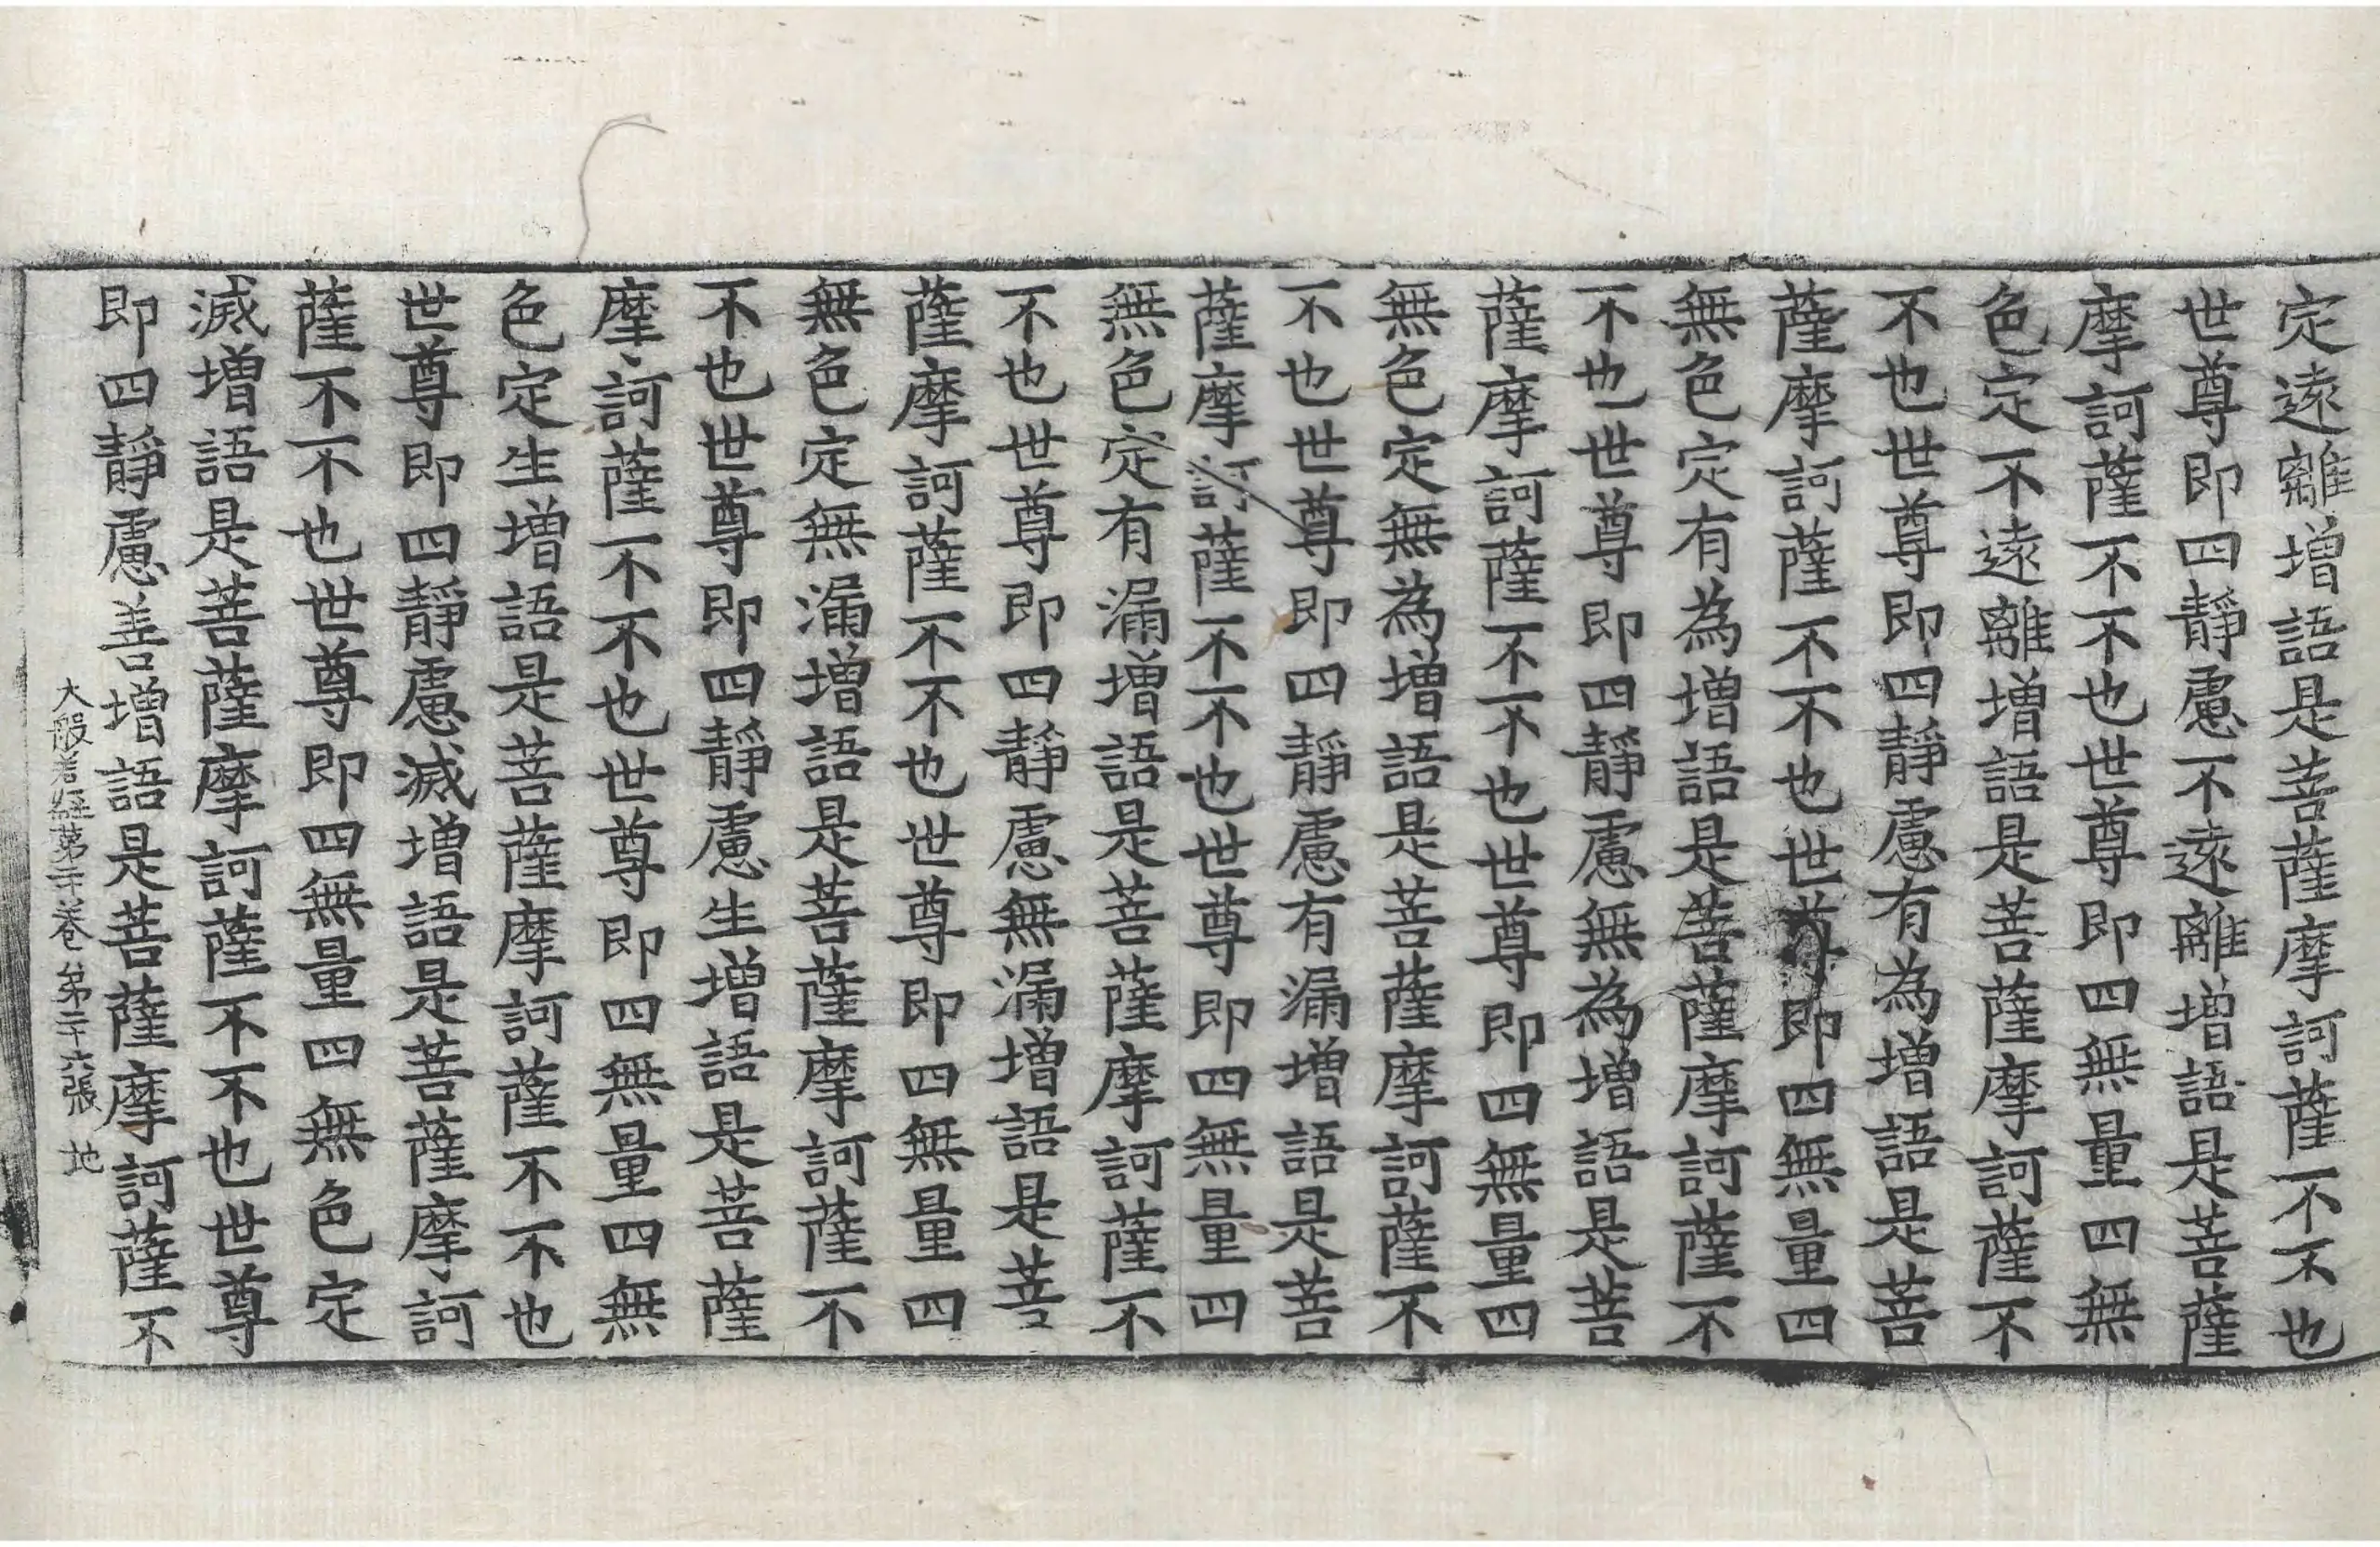 定遠離增語是菩薩摩訶薩不不也
世尊即四靜慮不遠離增語是菩薩
摩訶薩不不也世尊即四無量四無
色定不遠離增語是菩薩摩訶薩不
不也世尊即四靜慮有為增語是菩
薩摩訶薩不不也世尊即四無量四
無色定有為增語是菩薩摩訶薩不
不也世尊即四靜慮無為增語是菩
薩摩訶薩不不也世尊即四無量四
無色定無為增語是菩薩摩訶薩不
不也世尊即四靜慮有漏增語是菩
薩摩訶薩不不也世尊即四無量四
無色定有漏增語是菩薩摩訶薩不
不也世尊即四靜慮無漏增語是菩
薩摩訶薩不不也世尊即四無量四
無色定無漏增語是菩薩摩訶薩不
不也世尊即四靜慮生增語是菩薩
摩訶薩不不也世尊即四無量四無
色定生增語是菩薩摩訶薩不不也
世尊即四靜慮滅增語是菩薩摩訶
薩不不也世尊即四無量四無色定
滅增語是菩薩摩訶薩不不也世尊
即四靜慮善增語是菩薩摩訶薩不
大般若經第二十卷 第二十六張 地